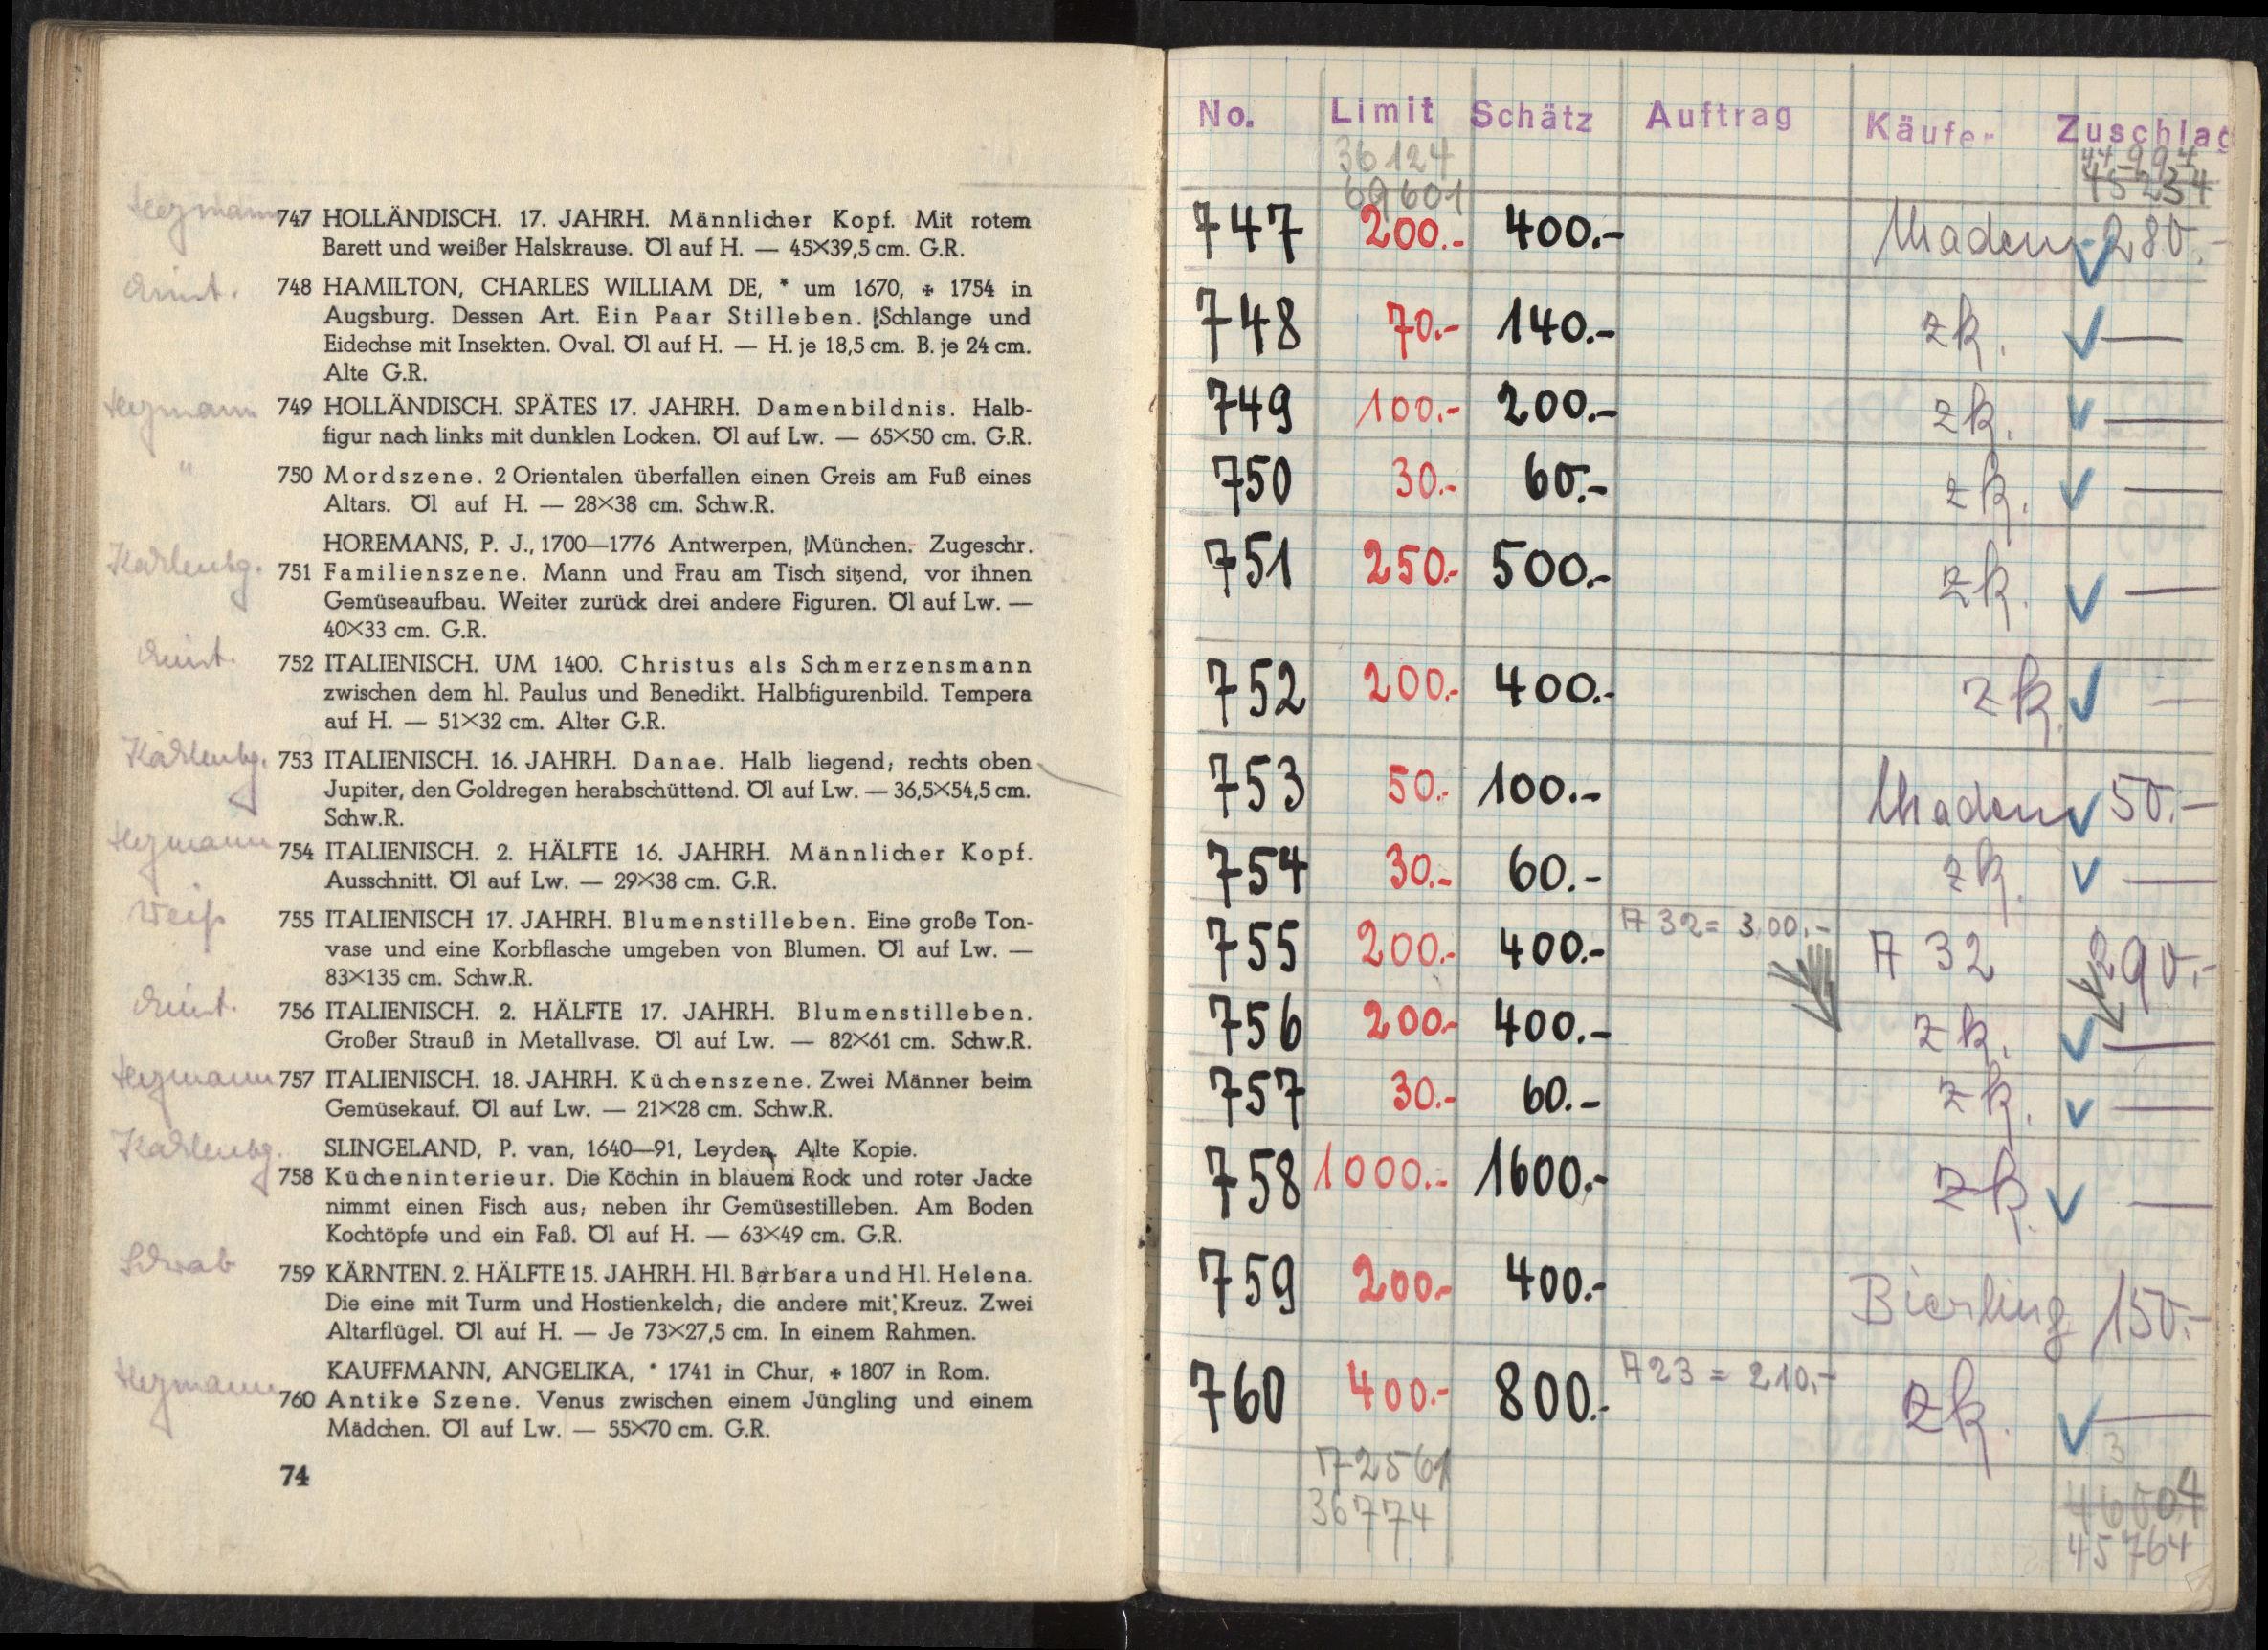 Hegmann
747 HOLLÄNDISCH. 17. JAHRH. Männlicher Kopf. Mit rotem
Barett und weißer Halskrause. Öl auf H. — 45×39,5 cm. G.R.
748 HAMILTON, CHARLES WILLIAM DE, * um 1670, ✠ 1754 in
Augsburg. Dessen Art. Ein Paar Stilleben. Schlange und
Eidechse mit Insekten. Oval. Öl auf H. — H. je 18,5 cm. B. je 24 cm.
Alte G.R.
Hegmann
749 HOLLÄNDISCH. SPÄTES 17. JAHRH. Damenbildnis. Halb-
figur nach links mit dunklen Locken. Öl auf Lw. — 65×50 cm. G.R.
"
750 Mordszene. 2 Orientalen überfallen einen Greis am Fuß eines
Altars. Öl auf H. — 28×38 cm. Schw.R.
HOREMANS, P. J., 1700—1776 Antwerpen, München. Zugeschr.
751 Familienszene. Mann und Frau am Tisch sitzend, vor ihnen
Gemüseaufbau. Weiter zurück drei andere Figuren. Öl auf Lw. —
40×33 cm. G.R.
752 ITALIENISCH. UM 1400. Christus als Schmerzensmann
zwischen dem hl. Paulus und Benedikt. Halbfigurenbild. Tempera
auf H. — 51×32 cm. Alter G.R.
753 ITALIENISCH. 16. JAHRH. Danae. Halb liegend; rechts oben
Jupiter, den Goldregen herabschüttend. Öl auf Lw. — 36,5×54,5 cm.
Schw.R.
Hegmann
754 ITALIENISCH. 2. HÄLFTE 16. JAHRH. Männlicher Kopf.
Ausschnitt. Öl auf Lw. — 29×38 cm. G.R.
Weiß
755 ITALIENISCH 17. JAHRH. Blumenstilleben. Eine große Ton-
vase und eine Korbflasche umgeben von Blumen. Öl auf Lw. —
83×135 cm. Schw.R.
756 ITALIENISCH. 2. HÄLFTE 17. JAHRH. Blumenstilleben.
Großer Strauß in Metallvase. Öl auf Lw. — 82×61 cm. Schw.R.
Hegmann
757 ITALIENISCH. 18. JAHRH. Küchenszene. Zwei Männer beim
Gemüsekauf. Öl auf Lw. — 21×28 cm. Schw.R.
SLINGELAND, P. van, 1640—91, Leyden. Alte Kopie.
758 Kücheninterieur. Die Köchin in blauem Rock und roter Jacke
nimmt einen Fisch aus; neben ihr Gemüsestilleben. Am Boden
Kochtöpfe und ein Faß. Öl auf H. — 63×49 cm. G.R.
Schwab
759 KÄRNTEN. 2. HÄLFTE 15. JAHRH. Hl. Barbara und Hl. Helena.
Die eine mit Turm und Hostienkelch; die andere mit Kreuz. Zwei
Altarflügel. Öl auf H. — Je 73×27,5 cm. In einem Rahmen.
KAUFFMANN, ANGELIKA, * 1741 in Chur, ✠ 1807 in Rom.
Hegmann
760 Antike Szene. Venus zwischen einem Jüngling und einem
Mädchen. Öl auf Lw. — 55×70 cm. G.R.
74
No. Limit Schätz Auftrag Käufer Zuschlag
36124 44994
69601 45234
747 200.- 400.- Maden 280.-
748 70.- 140.- zk. —
749 100.- 200.- zk. —
750 30.- 60.- zk. —
751 250.- 500.- zk. —
752 200.- 400.- zk. —
753 50.- 100.- Maden 50.-
754 30.- 60.- zk. —
755 200.- 400.- A 32 = 300.- A 32 290.-
756 200.- 400.- zk. —
757 30.- 60.- zk. —
758 1000.- 1600.- zk. —
759 200.- 400.- Bierling 150.-
760 400.- 800.- A 23 = 210,- zk. —
72561
36774
45764